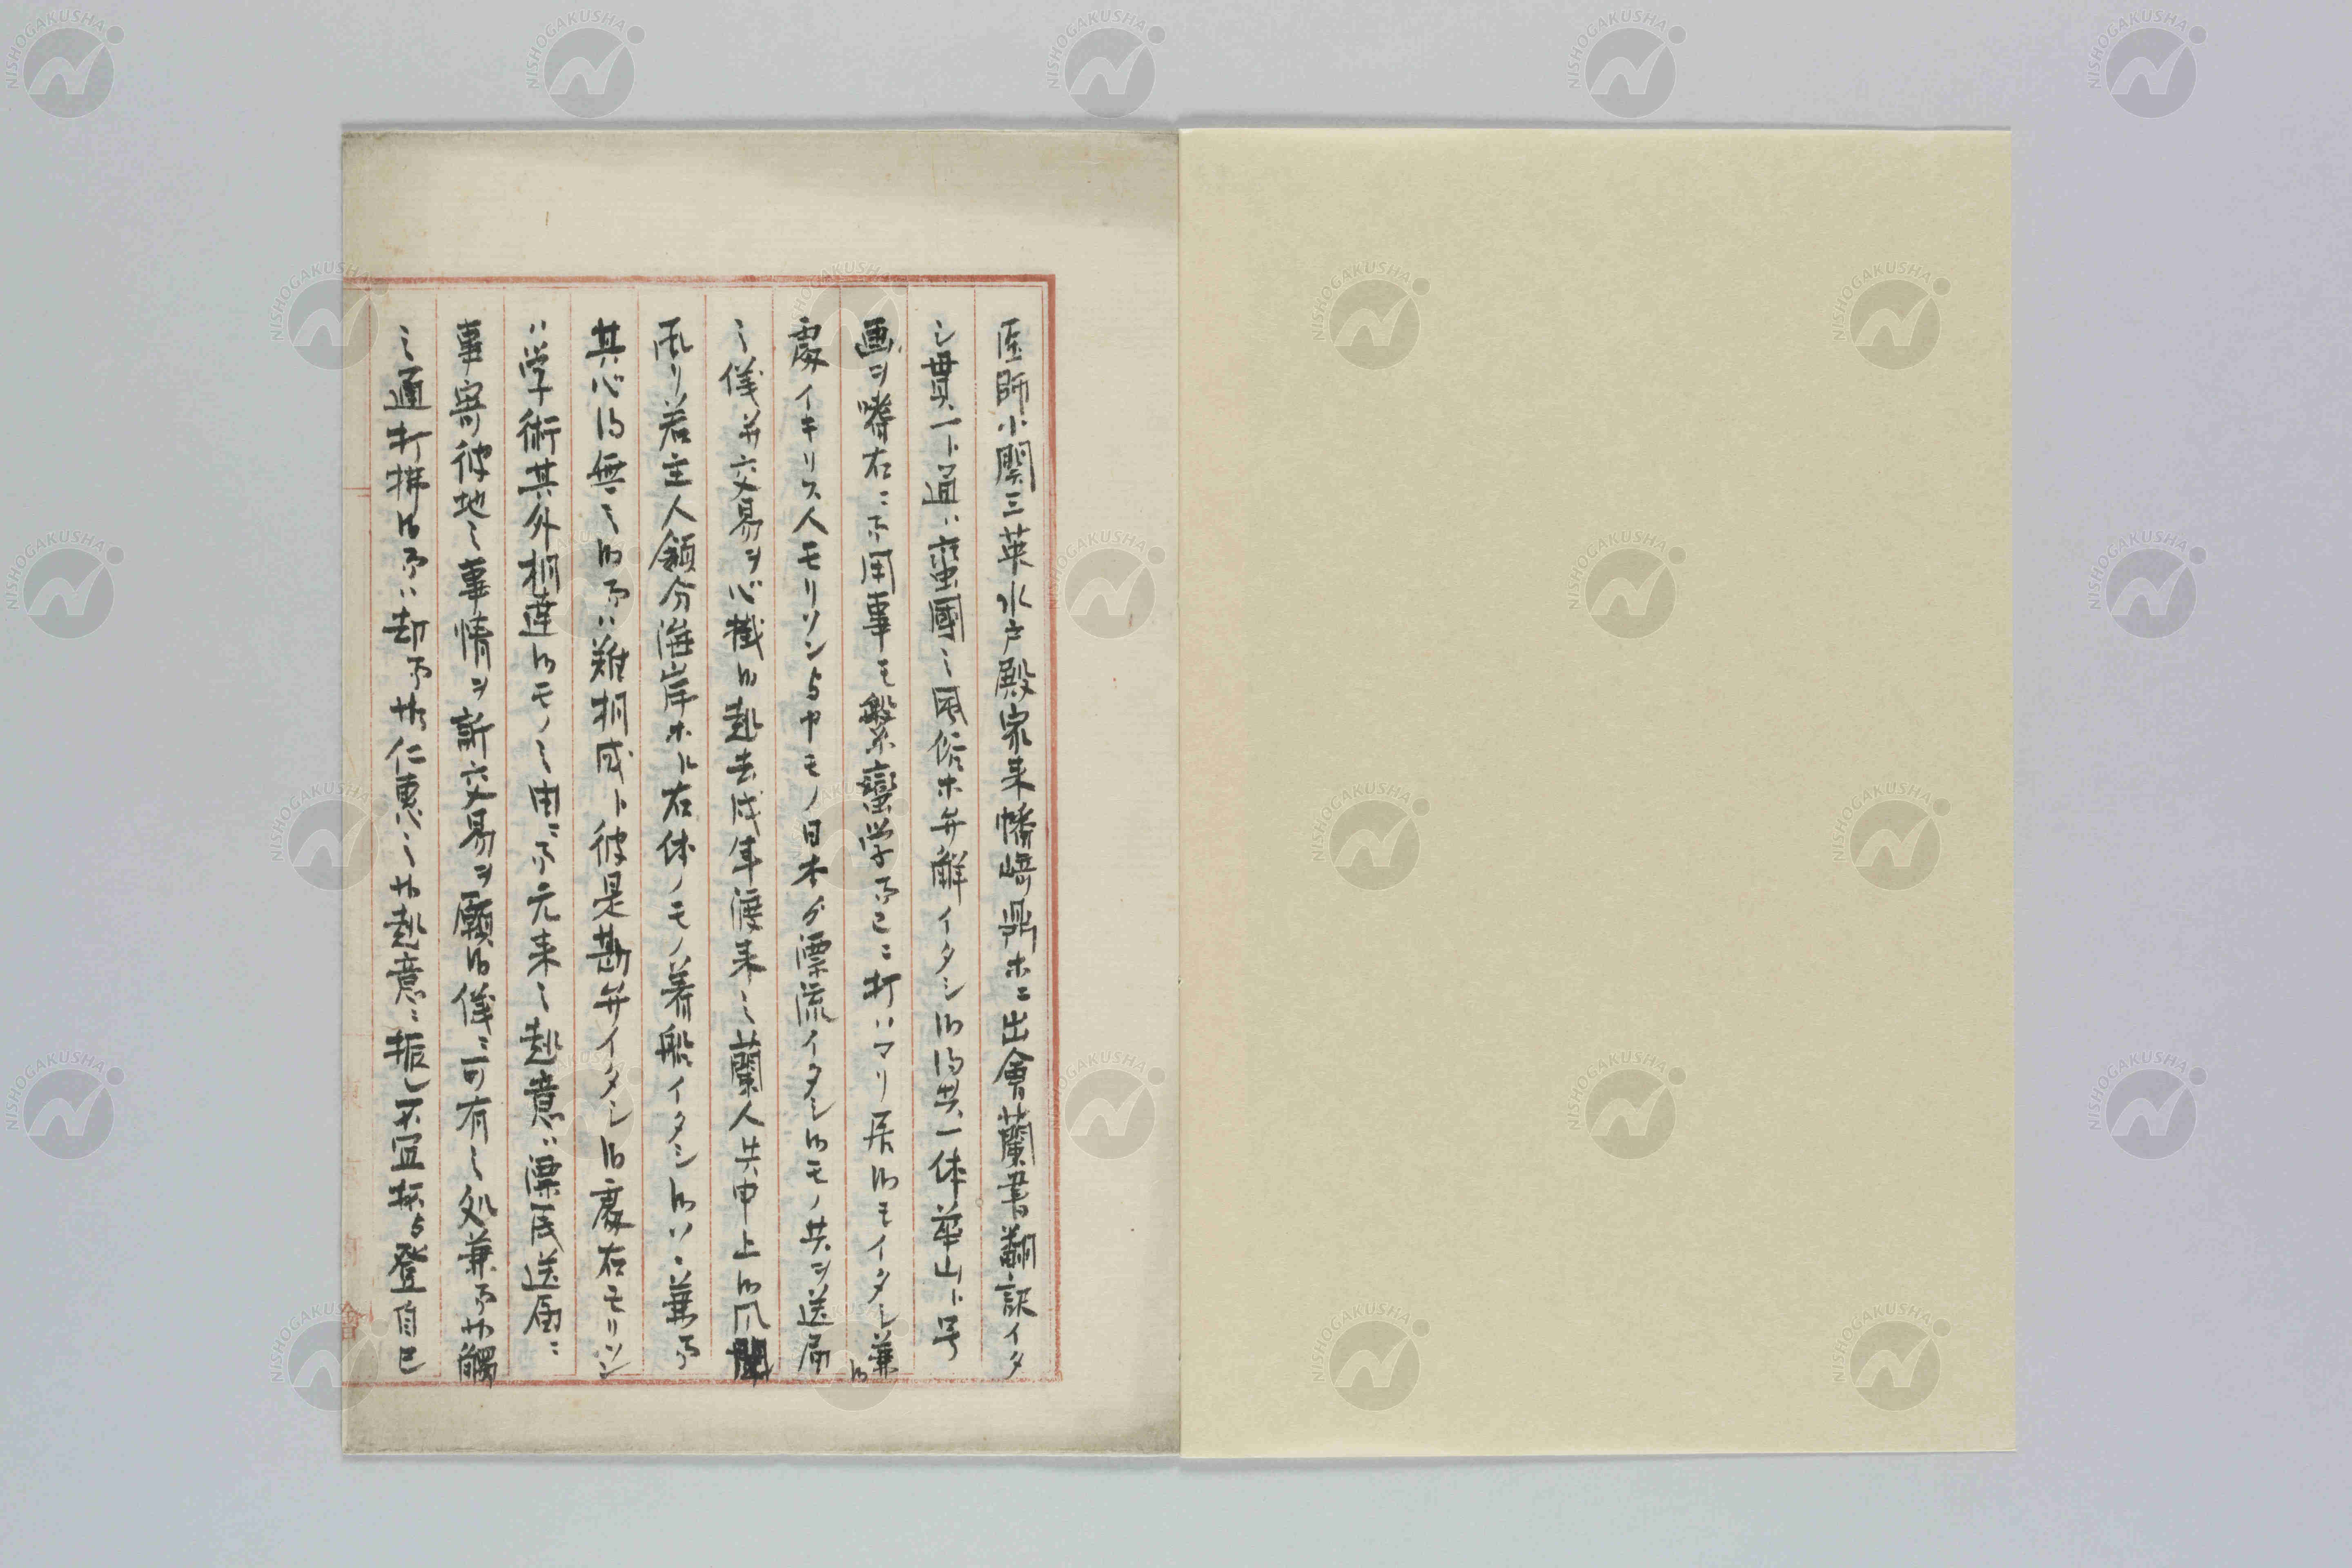 医師小関三英水戸殿家来幡崎鼎ホニ出會蘭書翻訳イタ
シ貫一ト通ハ蛮國之風俗ホ弁解イタシ候得共一体華山ト号
画ヲ嗜右ニ而用事モ繁蛮学而已ニ打ハマリ居候モイタシ兼候
處イキリス人モリソント申モノ日本ゟ漂流イタシ候モノ共ヲ送届
之儀并交易ヲ心掛候趣去戌年渡来之蘭人共申上候風聞
承リ若主人領分海岸ホヘ右体ノモノ着船イタシ候ハヽ兼而
其心得無之候而ハ難相成ト彼是勘弁イタシ候處右モリソン
ハ学術其外相達候モノ之由ニ而元来之趣意ハ漂民送届ニ
事寄彼地之事情ヲ訴交易ヲ願候儀ニ可有之処兼而御觸
之通打拂候而ハ却而御仁恵之御趣意ニ振レ不宜抔与登自己
NISHOGAKUSHA